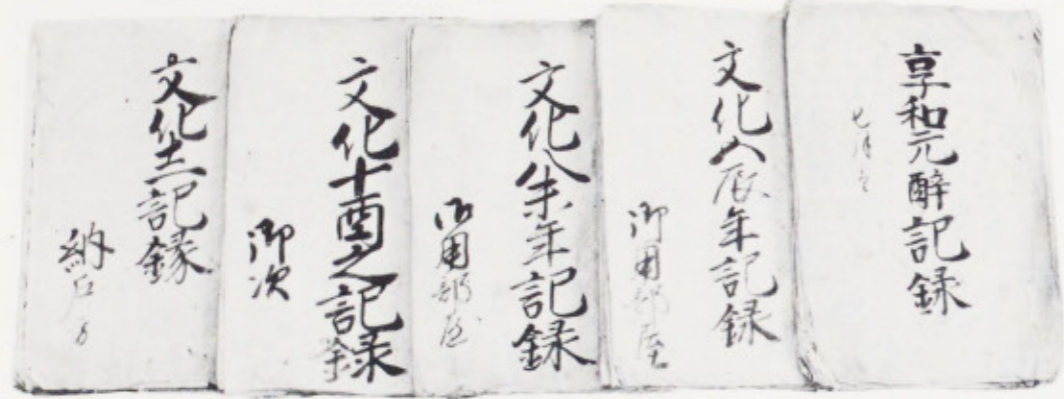 享和元酔記録
七月
文化八辰年記録
御用部屋
文化八未年記録
御用部屋
文化十酉之記録
御次
文化十一記録
納戸方